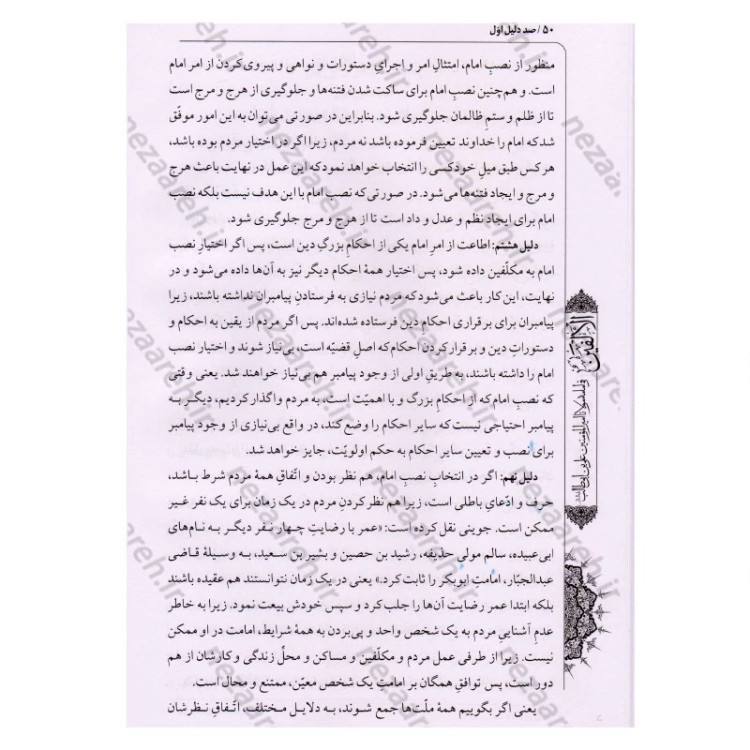 ۵۰ / صد دلیل اوّل
منظور از نصبِ امام، امتثالِ امر و اجرایِ دستورات و نواهی و پیروی‌کردن از امر امام
است. و هم‌چنین نصبِ امام برای ساکت شدن فتنه‌ها و جلوگیری از هرج و مرج است
تا از ظلم و ستمِ ظالمان جلوگیری شود. بنابراین در صورتی می‌توان به این امور موفّق
شد که امام را خداوند تعیین فرموده باشد نه مردم، زیرا اگر در اختیار مردم بوده باشد،
هر کس طبق میلِ خود کسی را انتخاب خواهد نمود که این عمل در نهایت باعث هرج
و مرج و ایجاد فتنه‌ها می‌شود. در صورتی که نصبِ امام با این هدف نیست بلکه نصب
امام برای ایجاد نظم و عدل و داد است تا از هرج و مرج جلوگیری شود.
دلیل هشتم: اطاعت از امرِ امام یکی از احکامِ بزرگِ دین است، پس اگر اختیارِ نصب
امام به مکلّفین داده شود، پس اختیار همهٔ احکام دیگر نیز به آن‌ها داده می‌شود و در
نهایت، این کار باعث می‌شود که مردم نیازی به فرستادنِ پیامبران نداشته باشند، زیرا
پیامبران برای برقراری احکام دین فرستاده شده‌اند. پس اگر مردم از یقین به احکام و
دستوراتِ دین و برقرار کردن احکام که اصلِ قضیّه است، بی‌نیاز شوند و اختیار نصب
امام را داشته باشند، به طریقِ اولی از وجود پیامبر هم بی‌نیاز خواهند شد. یعنی وقتی
که نصب امام که از احکامِ بزرگ و با اهمیّت است، به مردم واگذار کردیم، دیگر به
پیامبر احتیاجی نیست که سایر احکام را وضع کند، در واقع بی‌نیازی از وجود پیامبر
برای نصب و تعیین سایر احکام به حکم اولویّت، جایز خواهد شد.
دلیل نهم: اگر در انتخابِ نصبِ امام، هم نظر بودن و اتّفاقِ همهٔ مردم شرط باشد،
حرف و ادّعایِ باطلی است، زیرا هم نظر کردنِ مردم در یک زمان برای یک نفر غیر
ممکن است. جوینی نقل کرده است: «عمر با رضایتِ چهار نفر دیگر به نام‌های
ابی‌عبیده، سالم مولی حذیفه، رشید بن حصین و بشیر بن سعید، به وسیلهٔ قاضی
عبدالجبّار، امامتِ ابوبکر را ثابت کرد.» یعنی در یک زمان نتوانستند هم عقیده باشند
بلکه ابتدا عمر رضایت آن‌ها را جلب کرد و سپس خودش بیعت نمود. زیرا به خاطر
عدمِ آشنایی مردم به یک شخص واحد و پی‌بردن به همهٔ شرایط، امامت در او ممکن
نیست. زیرا از طرفی عمل مردم و مکلّفین و مساکن و محلّ زندگی و کارشان از هم
دور است، پس توافقِ همگان بر امامتِ یک شخص معیّن، ممتنع و محال است.
یعنی اگر بگوییم همهٔ ملّت‌ها جمع شوند، به دلایل مختلف، اتّفاقِ نظرشان
الالفین
nezaareh.ir
nezaareh.ir
nezaareh.ir
nezaareh.ir
nezaareh.ir
nezaareh.ir